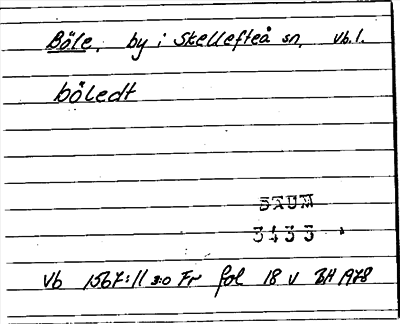 Böle, by i Skellefteå sn, Vb.l.
böledt
SKUM
3433
Vb 1567:11 3:0 Fr fol 18 v BH 1978